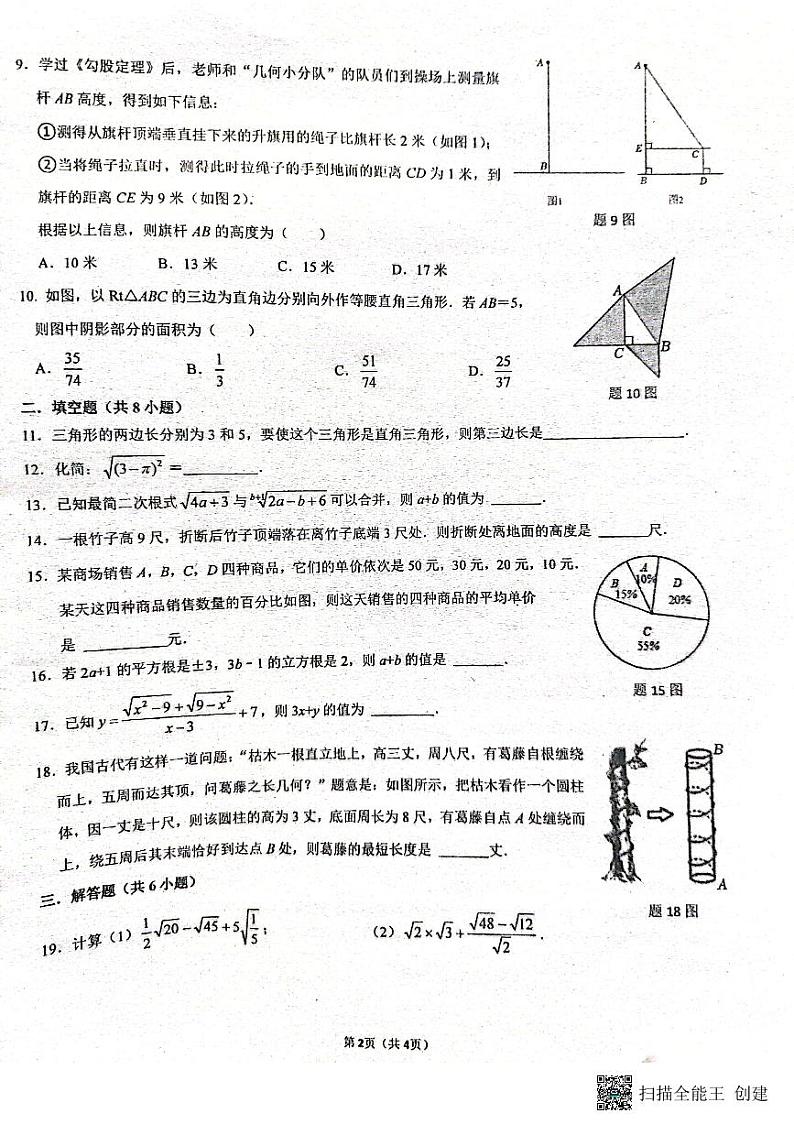 9. 学过《勾股定理》后，老师和“几何小分队”的队员们到操场上测量旗
杆 AB 高度，得到如下信息：
①测得从旗杆顶端垂直挂下来的升旗用的绳子比旗杆长 2 米（如图 1）；
②当将绳子拉直时，测得此时拉绳子的手到地面的距离 CD 为 1 米，到
旗杆的距离 CE 为 9 米（如图 2）．
根据以上信息，则旗杆 AB 的高度为（　　）
A．10 米　B．13 米　C．15 米　D．17 米
A
B
图1
A
E
C
B
D
图2
题 9 图
10. 如图，以 Rt△ABC 的三边为直角边分别向外作等腰直角三角形．若 AB＝5，
则图中阴影部分的面积为（　　）
A．35/74　B．1/3　C．51/74　D．25/37
A
C
B
题 10 图
二．填空题（共 8 小题）
11．三角形的两边长分别为 3 和 5，要使这个三角形是直角三角形，则第三边长是______．
12．化简：√(3−π)² ＝______．
13．已知最简二次根式 √4a+3 与 ᵇ⁺¹√2a−b+6 可以合并，则 a+b 的值为 ______．
14．一根竹子高 9 尺，折断后竹子顶端落在离竹子底端 3 尺处．则折断处离地面的高度是 ______ 尺．
15．某商场销售 A，B，C，D 四种商品，它们的单价依次是 50 元，30 元，20 元，10 元．
某天这四种商品销售数量的百分比如图，则这天销售的四种商品的平均单价
是 ______元．
A
10%
B
15%
D
20%
C
55%
题 15 图
16．若 2a+1 的平方根是±3，3b﹣1 的立方根是 2，则 a+b 的值是 ______．
17．已知 y＝(√x²−9+√9−x²)/(x−3)+7，则 3x+y 的值为 ______．
18．我国古代有这样一道问题：“枯木一根直立地上，高三丈，周八尺，有葛藤自根缠绕
而上，五周而达其顶，问葛藤之长几何？”题意是：如图所示，把枯木看作一个圆柱
体，因一丈是十尺，则该圆柱的高为 3 丈，底面周长为 8 尺，有葛藤自点 A 处缠绕而
上，绕五周后其末端恰好到达点 B 处，则葛藤的最短长度是 ______丈．
B
A
题 18 图
三．解答题（共 6 小题）
19．计算（1）1/2√20−√45+5√1/5；　（2）√2×√3+(√48−√12)/√2．
第 2页（共 4页）
扫描全能王 创建